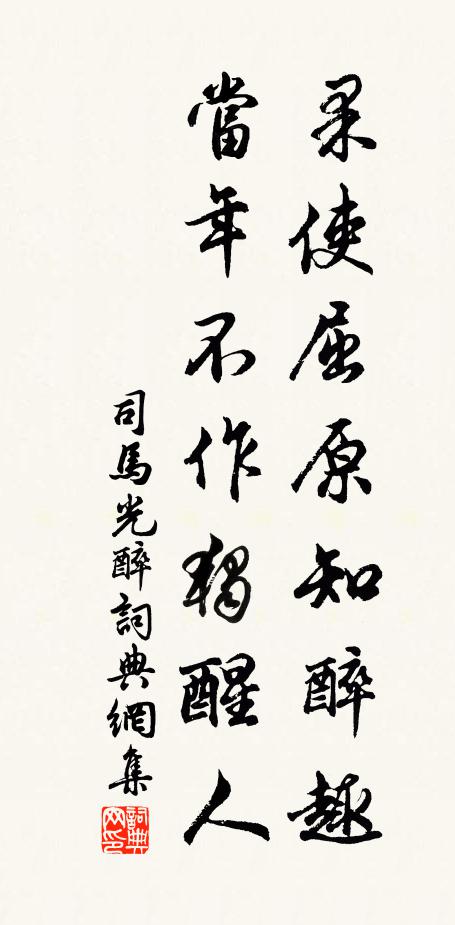 果使屈原知醉趣
當年不作獨醒人
司馬光醉詞典網集
詞典網印